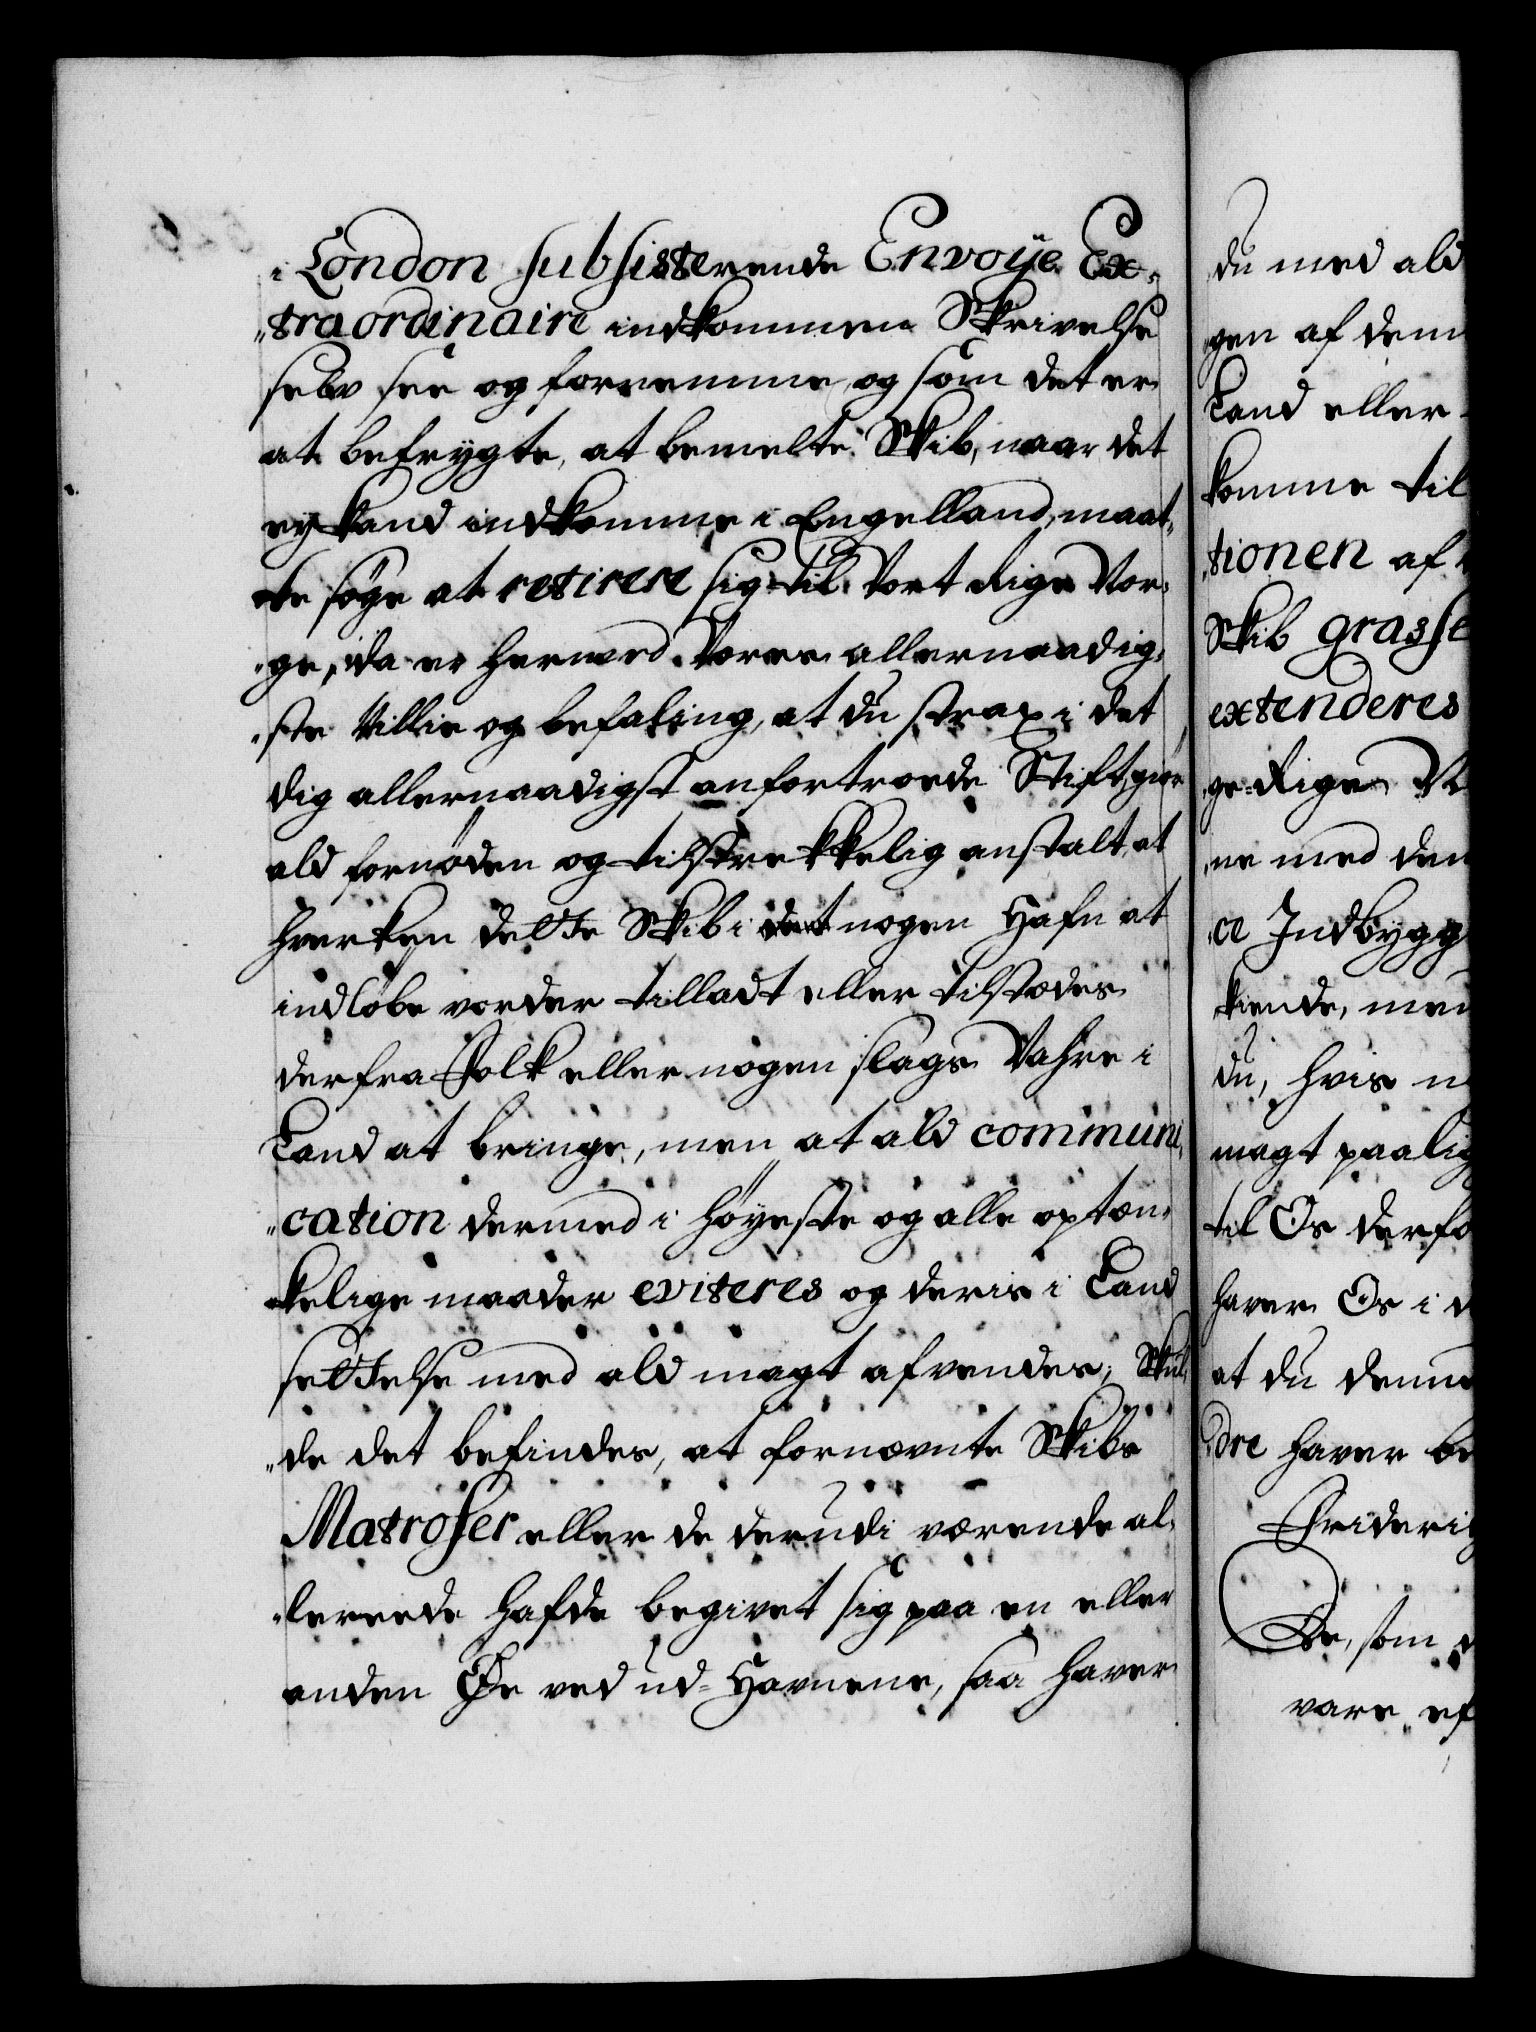 i London subsisterende Envoÿe Ex-
„traordinaire indkommen Skrivelse
selv see og fornemme, og som det er
at befrygte, at bemelte Skib, naar det
ey kand indkomme i Engelland, maat„
te søge at retirere sig til Vort Rige Nor„
„ge, da er hermed Vores allernaadig„
„ste Villie og befaling, at du strax i det
dig allernaadigst anfortroede Stift, giør
ald fornøden og tilstrekkelig anstalt, at
hverken dette Skib i nogen Hafn at
indløbe vorder tilladt eller tilstædes
derfra Folk eller nogen slags Vahre i
Land at bringe, men at ald communi„
„cation dermed i høyeste og alle optæn„
kelige maader eviteres og deris i Land
settelse med ald magt afvendes; Skul„
„de det befindes, at fornævnte Skibs
Matroser eller de derudi værende al„
„lereede hafde begivet sig paa en eller
anden Øe ved ud-Havnene, saa haver
du med ald
gen af dem
Land eller
komme til
„tionen af
Skib grasse
extenderes
„ge-Rige
ne med den
„ce Indbygg
kiende, men
du, hvis
magt paalig
til Os derfo
haver Os i
at du denne
„dre haver be
Friderig
De, som
vare ef